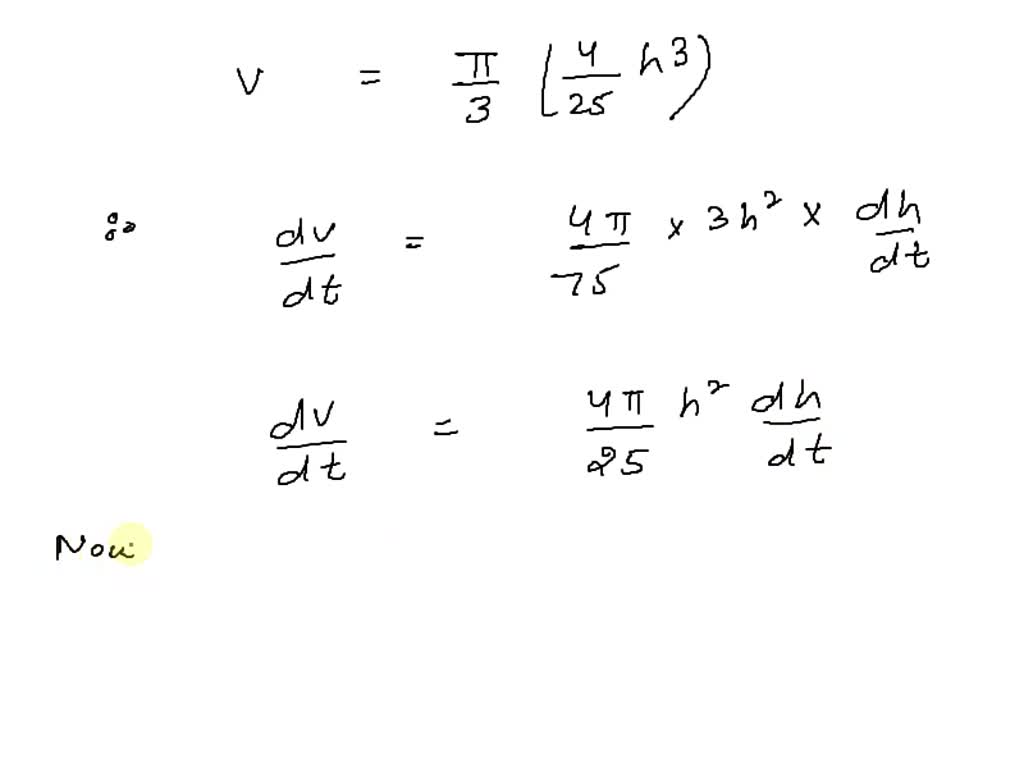 V = π/3 (4/25 h³)
∴ dv/dt = 4π/75 × 3h² × dh/dt
dv/dt = 4π/25 h² dh/dt
Now